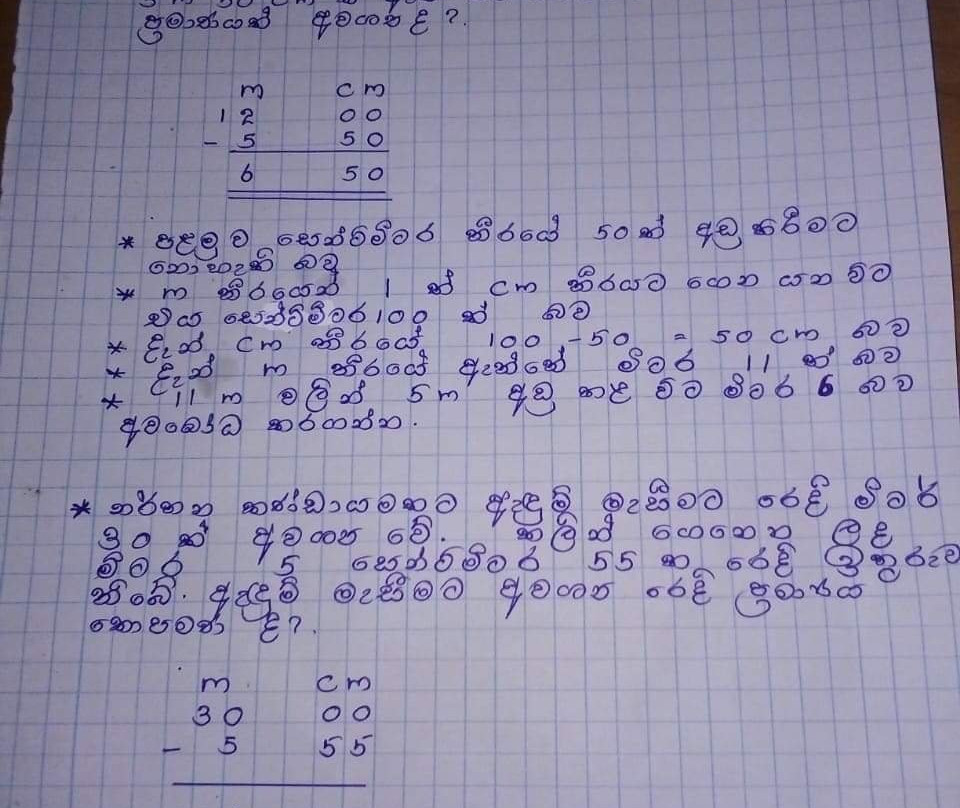 ප්‍රමාණයක් අවශ්‍ය ද ?.
m cm
12 00
- 5 50
6 50
* පළමු ව සෙන්ටිමීටර තීරයේ 50න් අඩු කිරීමට
නොහැකි බව
* m තීරයෙන් 1 ක් cm තීරයට ගෙන යන විට
එය සෙන්ටිමීටර 100 ක් බව
* දැන් cm තීරයේ 100 - 50 = 50 cm බව
* දැන් m තීරයේ ඇත්තේ මීටර 11 ක් බව
* 11 m වලින් 5m අඩු කළ විට මීටර 6 බව
අවබෝධ කරගන්න.
* නර්තන කණ්ඩායමකට ඇඳුම් මැසීමට රෙදි මීටර්
30 ක් අවශ්‍ය වේ. කලින් ගෙනෙන ලද
මීටර 5 සෙන්ටිමීටර 55 ක රෙදි ඉතුරුව
තිබේ. ඇඳුම් මැසීමට අවශ්‍ය රෙදි ප්‍රමාණය
කොපමණ ද?.
m cm
30 00
- 5 55